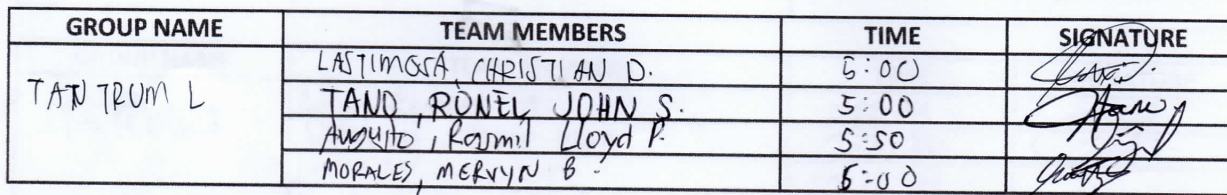 GROUP NAME TEAM MEMBERS TIME SIGNATURE
TANTRUM L
LASTIMOSA, CHRISTIAN D. 5:00
TANO, RONEL JOHN S. 5:00
Lloyd P. 5:50
MORALES, MERVYN B. 5:00